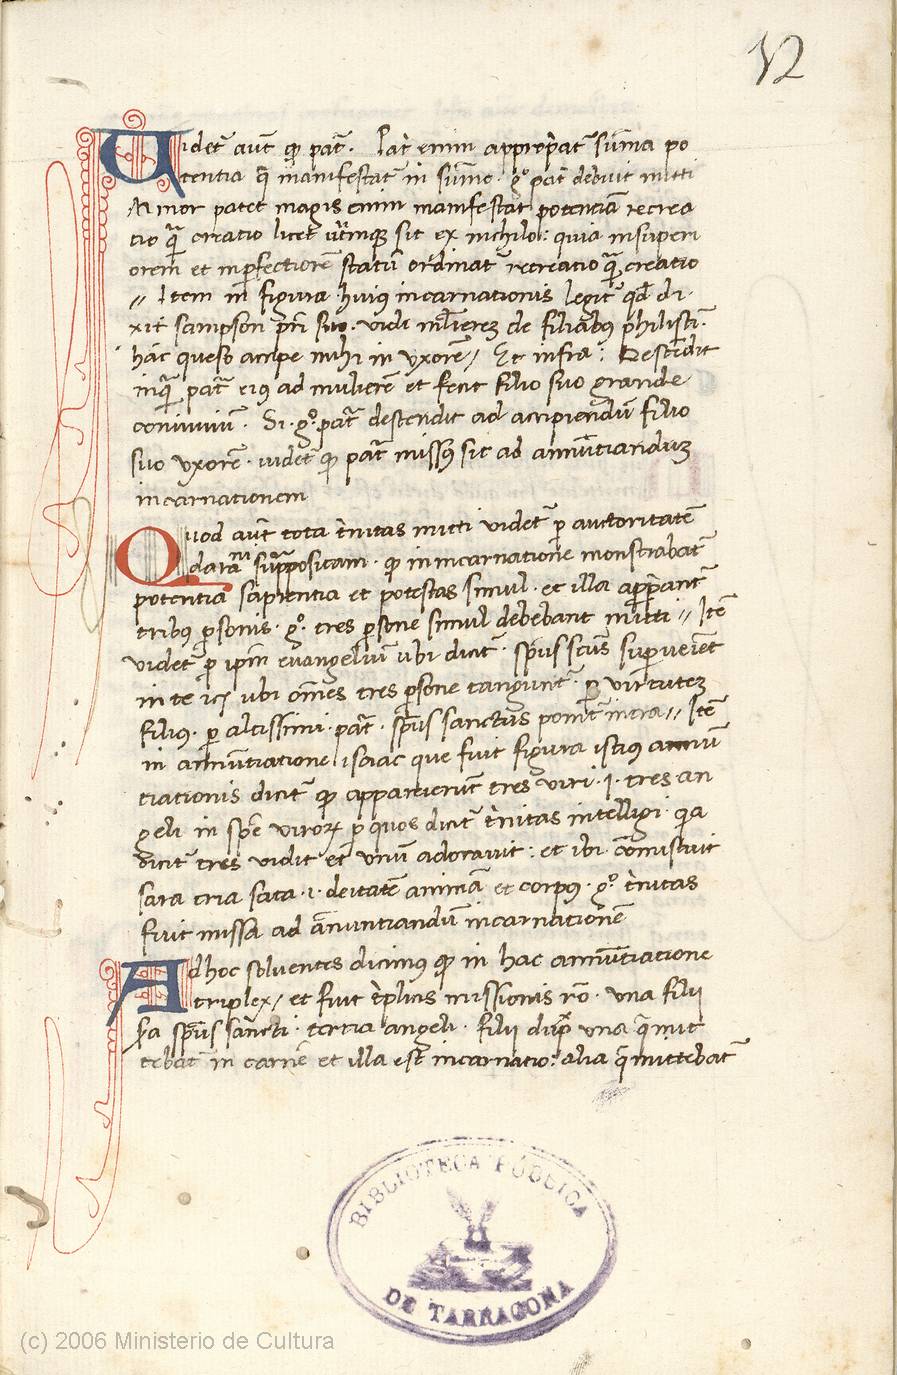 12
Videt aut qp pat. Pat enim appropat suma po
tentia q manifestat in sume. go pat debuit mitti
Minor patet magis enim manifestat potentia recrea
tio qa creatio licet utrumq sit ex nichilo: quia insuperi
orem et inperfectiore statu ordinat recreatio qa creatio
// Item in figura huius incarnationis legit qd di
xit sampson pri suo. vidi mlierez de filiabus philisti.
hac queso accipe mihi in uxore/ Et infra: Descedit
inqa pat eius ad muliere et fecit filio suo grande
conviviu. Si. go. pat descendit ad accipiendu filio
suo uxore. videt qp pat missus sit ad annutianduz
incarnationem
Quod aut tota trinitas mitti videt p auctoritate
dicam suppositam. qp in incarnatione monstrabat
potentia sapientia et potestas simul. et illa appant
tribus psonis. go. tres psone simul debebant mitti // Ite
videt p ipm evangeliu ubi dicit. spus scus superveiet
in te ubi omes tres psone tangunt. p virtutez
filius. p altissimi. pat. spus sanctus ponit // Ite
in annutiatione isaac que fuit figura istius annu
tiationis dicit qp apparuerunt tres viri. i. tres an
geli in spe viroz p quos dicit trinitas intelligi. qa
dicit tres vidit et unu adoravit: et ibi comiscuit
sara tria sata. i. deitate anima et corpus. go trinitas
fuit missa ad anuntiandu incarnatione
Ad hoc solventes dicimus qp in hac annutiatione
triplex/ et fuit tplicis missionis ro. una filii
scda spus sancti. tertia angeli. filii dupl una q mit
tebat in carne et illa est incarnatio: alia q mittebat
BIBLIOTECA PÚBLICA
DE TARRAGONA
(c) 2006 Ministerio de Cultura